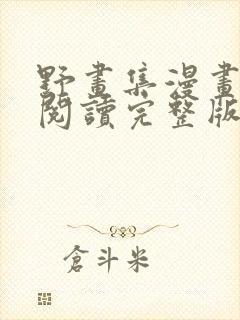 野畫集漫畫
閱讀完整版
倉斗米